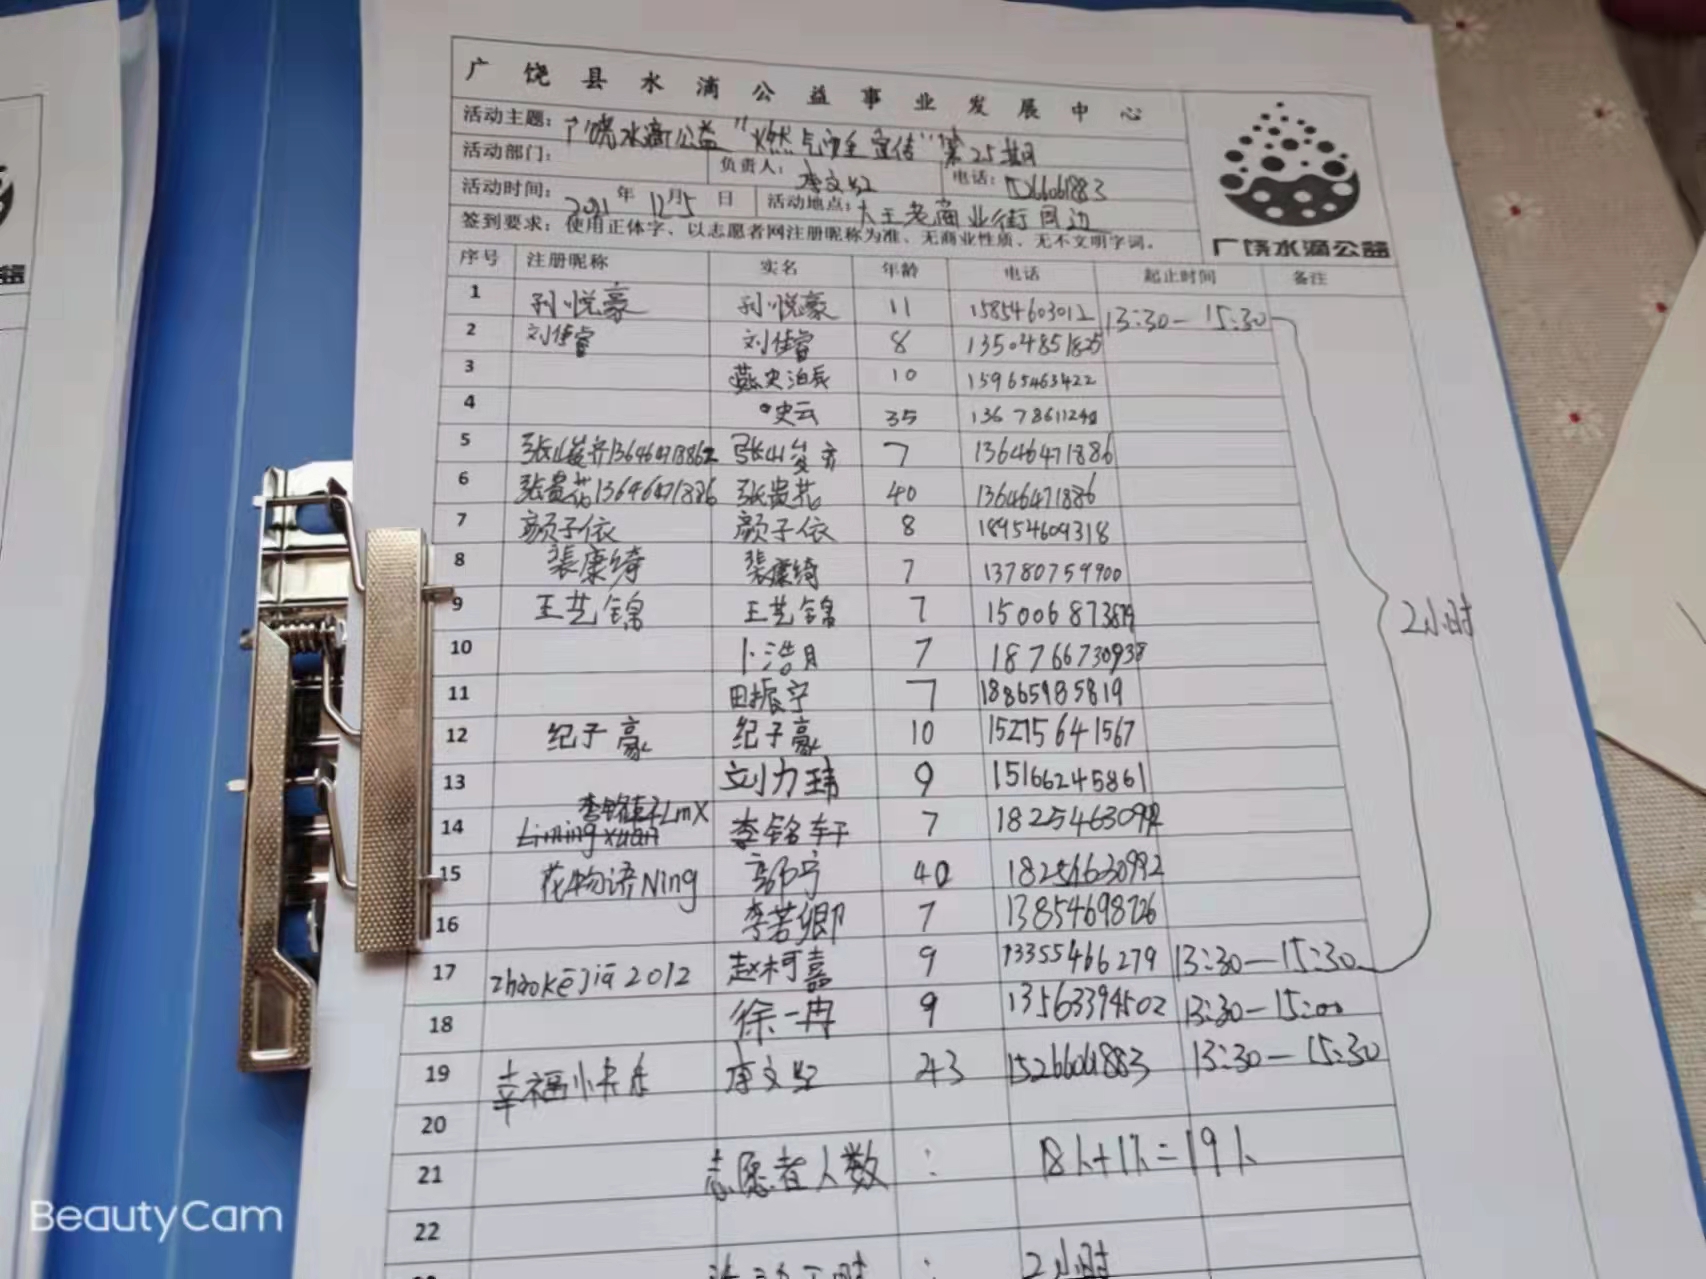 广饶县水滴公益事业发展中心
活动主题：广饶水滴公益"燃气安全宣传"第25期
活动部门： 负责人：李文 电话：15266061883
活动时间：2021年12月5日 活动地点：大王老商业街周边
签到要求：使用正体字、以志愿者网注册昵称为准、无商业性质、无不文明字词。
广饶水滴公益
序号 注册昵称 实名 年龄 电话 起止时间 备注
1 孙悦豪 孙悦豪 11 15854603012 13:30－15:30
2 刘佳睿 刘佳睿 8 13504851825
3 燕史泊辰 10 15965463422
4 史云 35 13678611240
5 张峻齐13646471886 张峻齐 7 13646471886
6 张贵花13646471886 张贵花 40 13646471886
7 颜子依 颜子依 8 18954609318
8 裴康绮 裴康绮 7 13780759900
9 王艺锦 王艺锦 7 15006873
2小时
10 卜浩月 7 18766730938
11 田振宁 7 18865985819
12 纪子豪 纪子豪 10 15275641567
13 刘力玮 9 15166245861
14 李铭轩LmX Limingxuan 李铭轩 7 1825463099
15 花物语Ning 郭宁 40 18254630992
16 李若卿 7 13854698726
17 zhaokejia2012 赵柯嘉 9 13355466279 13:30－15:30
18 徐一冉 9 13563394502 13:30－15:00
19 幸福小 李文 43 15266061883 13:30－15:30
20
21 志愿者人数： 18人+1人=19人
22
2小时
BeautyCam